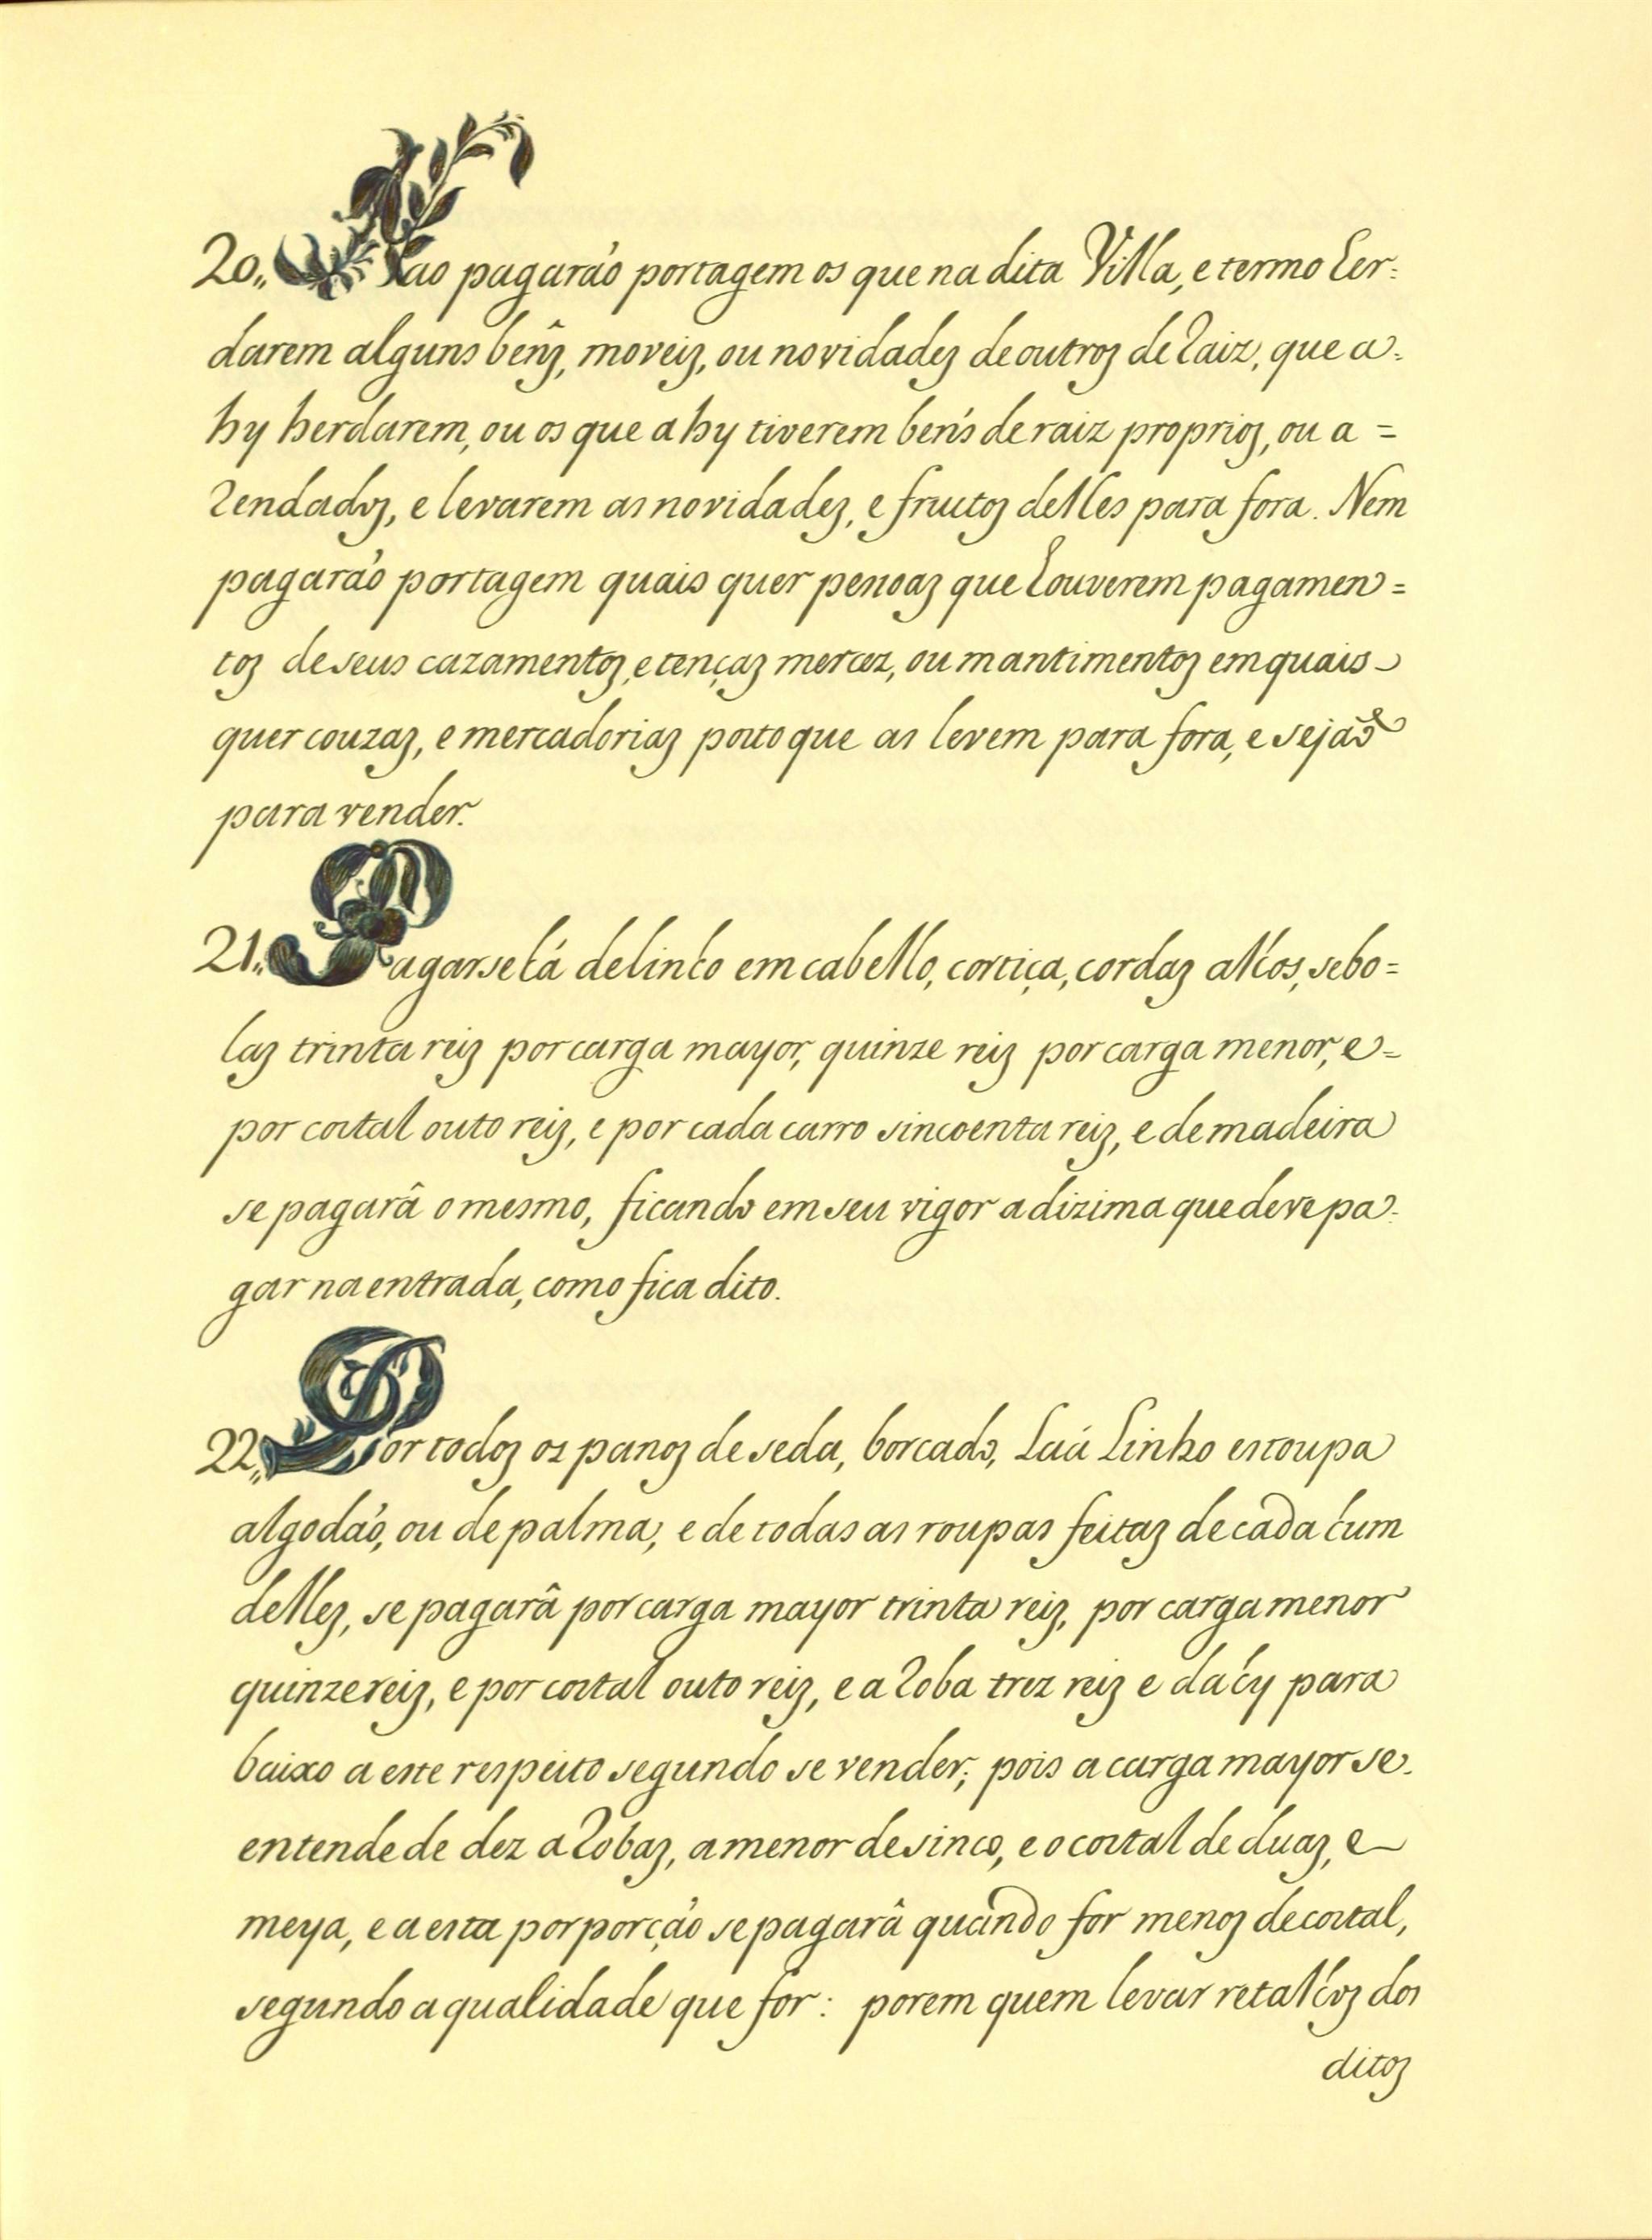 20,, Nao pagaráo portagem os que na dita Villa, e termo her=
darem alguns bens, moveis, ou novidades de outros de Raiz, que a=
hy herdarem, ou os que ahy tiverem bens de raiz proprios, ou a=
Rendados, e levarem as novidades, e fructos delles para fora. Nem
pagaráo portagem quais quer pessoas que houverem pagamen=
tos de seus cazamentos, e tenças mercez, ou mantimentos em quais
quer couzas, e mercadorias posto que as levem para fora, e sejaõ
para vender.
21,, Pagarsehá de linho em cabello, cortiça, cordas alhos, sebo=
las trinta reis por carga mayor, quinze reis por carga menor, e=
por costal outo reis, e por cada carro sincoenta reis, e de madeira
se pagarâ o mesmo, ficando em seu vigor a dizima que deve pa=
gar na entrada, como fica dito.
22,, Por todos os panos de seda, borcado, Laá Linho estoupa
algodáo, ou de palma, e de todas as roupas feitas de cada hum
delles, se pagarâ por carga mayor trinta reis, por carga menor
quinze reis, e por costal outo reis, e aRoba trez reis e dahy para
baixo a este respeito segundo se vender; pois a carga mayor se
entende de dez aRobas, a menor de sinco, e o costal de duas, e
meya, e a esta porporçáo se pagarâ quando for menos de costal,
segundo a qualidade que for: porem quem levar retalhos dos
ditos